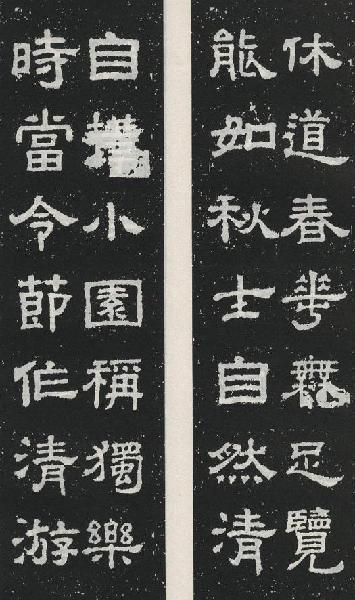 休道春華無足覽
能如秋士自然清
自小園稱獨樂
時當令節作清游